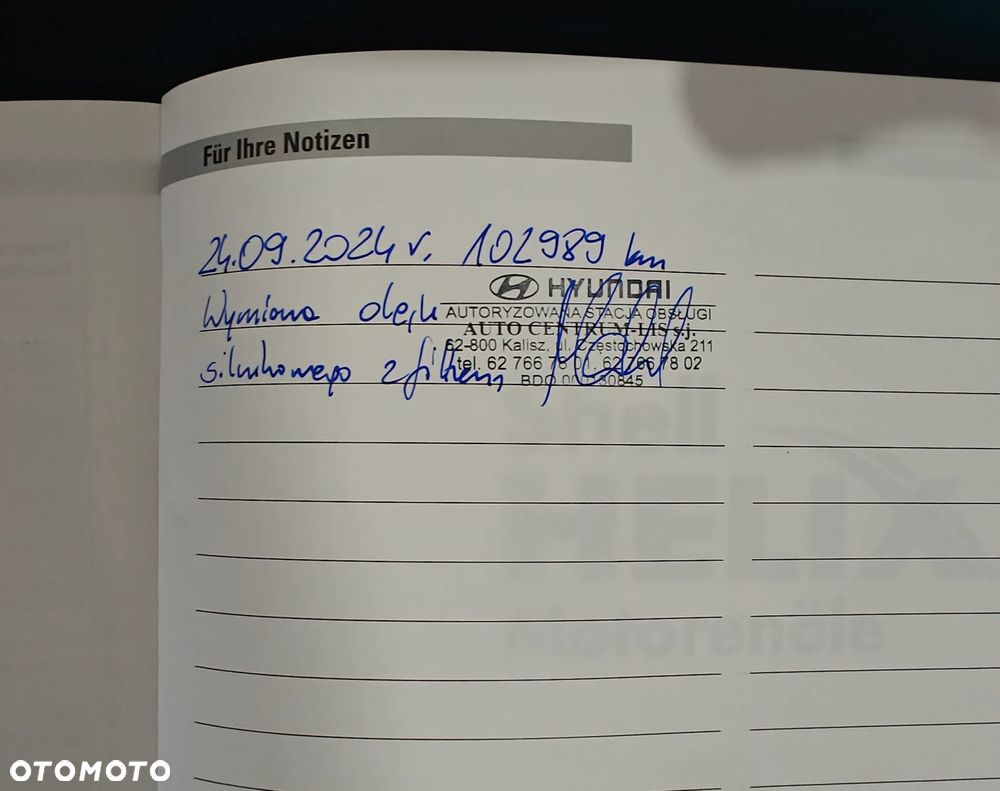 Für Ihre Notizen
24.09.2024 r. 102989 km
HYUNDAI
Wymiana oleju
AUTORYZOWANA STACJA OBSŁUGI
AUTO CENTRUM-LIS s.j.
62-800 Kalisz, ul. Częstochowska 211
silnikowego z filtrem
tel. 62 766 78 01, 62 766 78 02
BDO
Shell
HELIX
Motorenöle
OTOMOTO